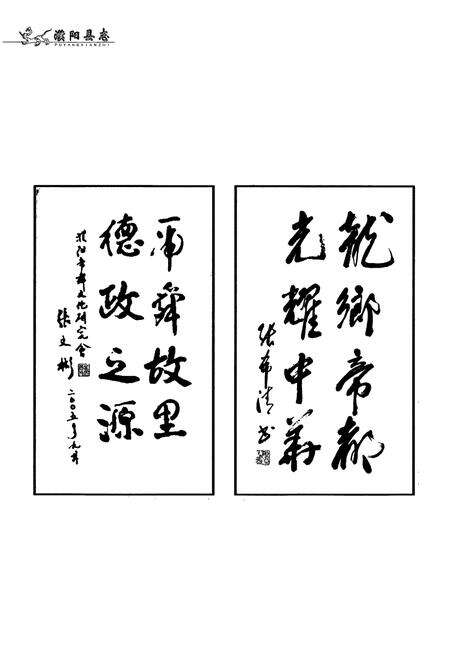 濮阳县志
PUYANGXIANZHI
龍鄉帝都
光耀中華
张希清书
帝舜故里
德政之源
濮阳市舜文化研究会
张文彬
二〇〇五年九月